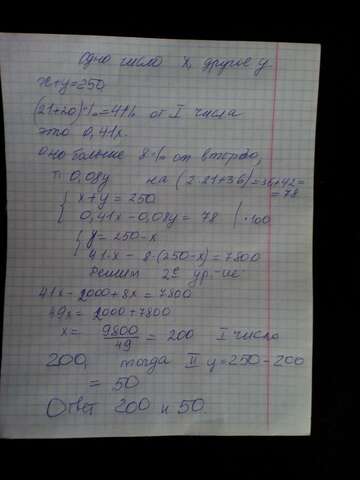 Одно число x, другое y
x+y=250
(21+20)%=41% от I числа
это 0,41x.
оно больше 8% от второго,
т. 0,08y на (2·21+36)=36+42=
=78
{ x+y=250
0,41x-0,08y=78 | ·100
{ y=250-x
41·x-8·(250-x)=7800
Решим 2ое ур-ие
41x-2000+8x=7800
49x=2000+7800
x=9800/49=200 I число
200, тогда II y=250-200
=50
Ответ 200 и 50.